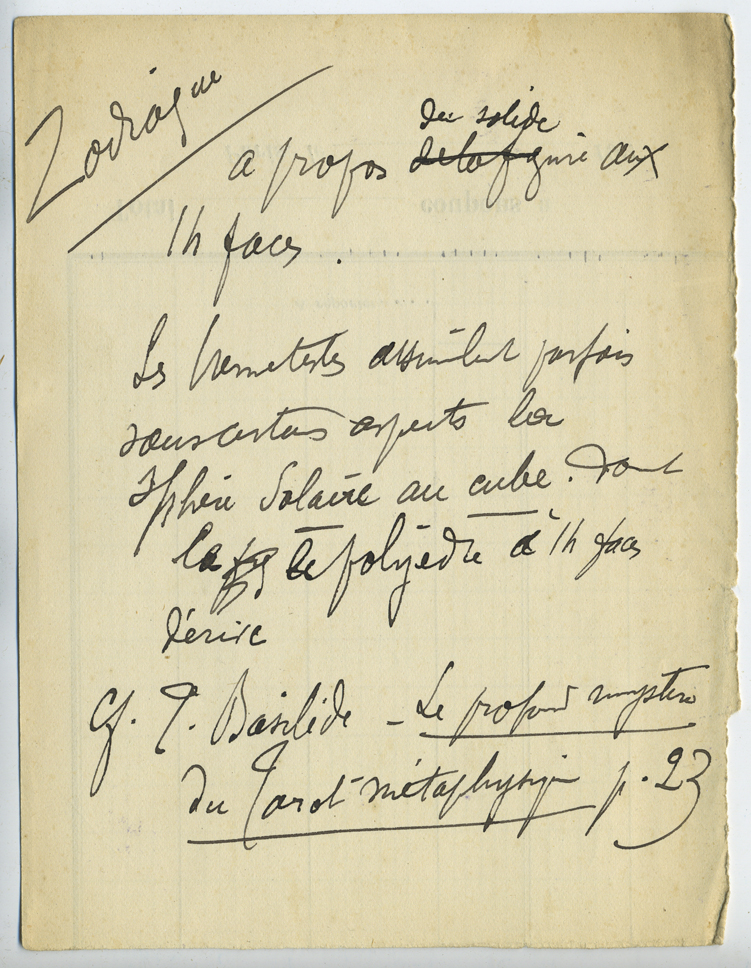 Zodiaque
du solide
à propos de la figure aux
14 faces.
Les hermetistes assimilent parfois
sous certains aspects la
sphère Solaire au cube. Dont
la fig le polyèdre à 14 faces
dérive
cf. T. Basilide - Le profond mystère
du Tarot métaphysique p. 23